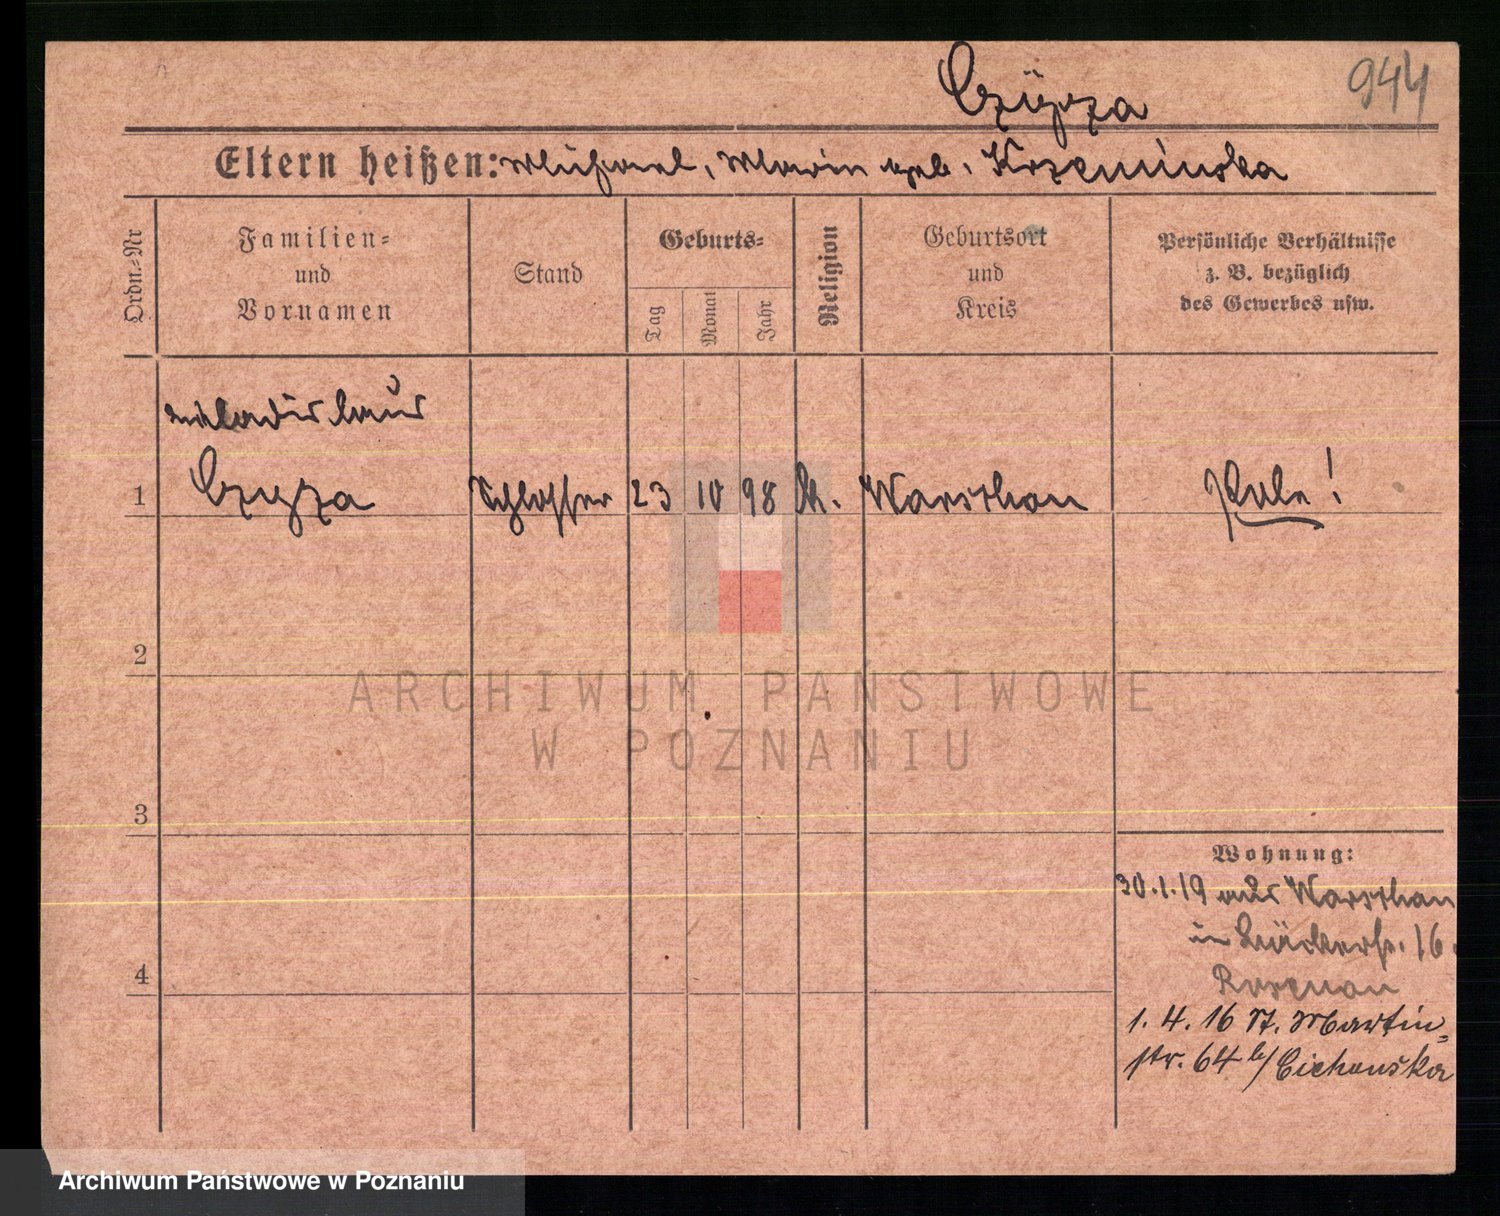 Czyzza
944
Eltern heißen: Michael, Maria geb. Krzeminska
Ordn.-Nr
Familien-
und
Vornamen
Stand
Geburts-
Tag
Monat
Jahr
Religion
Geburtsort
und
Kreis
Persönliche Verhältnisse
z. B. bezüglich
des Gewerbes usw.
1
Czyzza
Schlosser
23
10
98
k.
Warschau
Pole!
2
3
4
Wohnung:
30.1.19 aus Warschau
in Bäckerstr. 16.
Rosenau
1. 4. 16 St. Martin-
str. 64 b/ Cichonska
ARCHIWUM PAŃSTWOWE
W POZNANIU
Archiwum Państwowe w Poznaniu